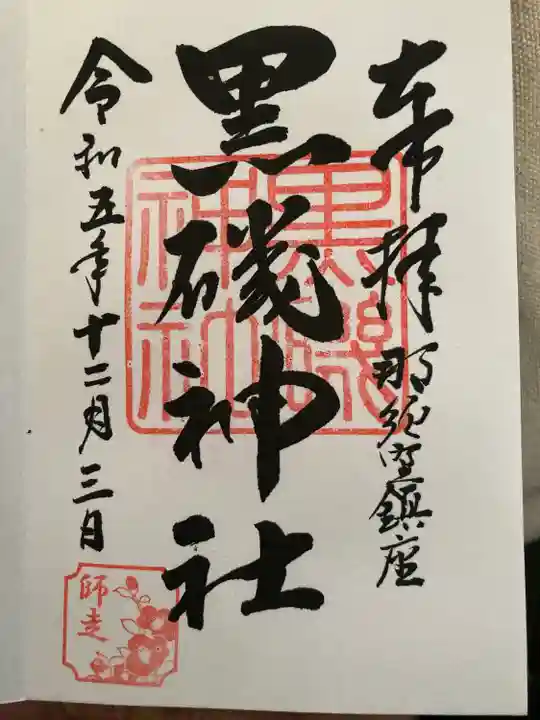 奉拝
那須野鎮座
黒磯神社
黒磯
神社
令和五年十二月三日
師走